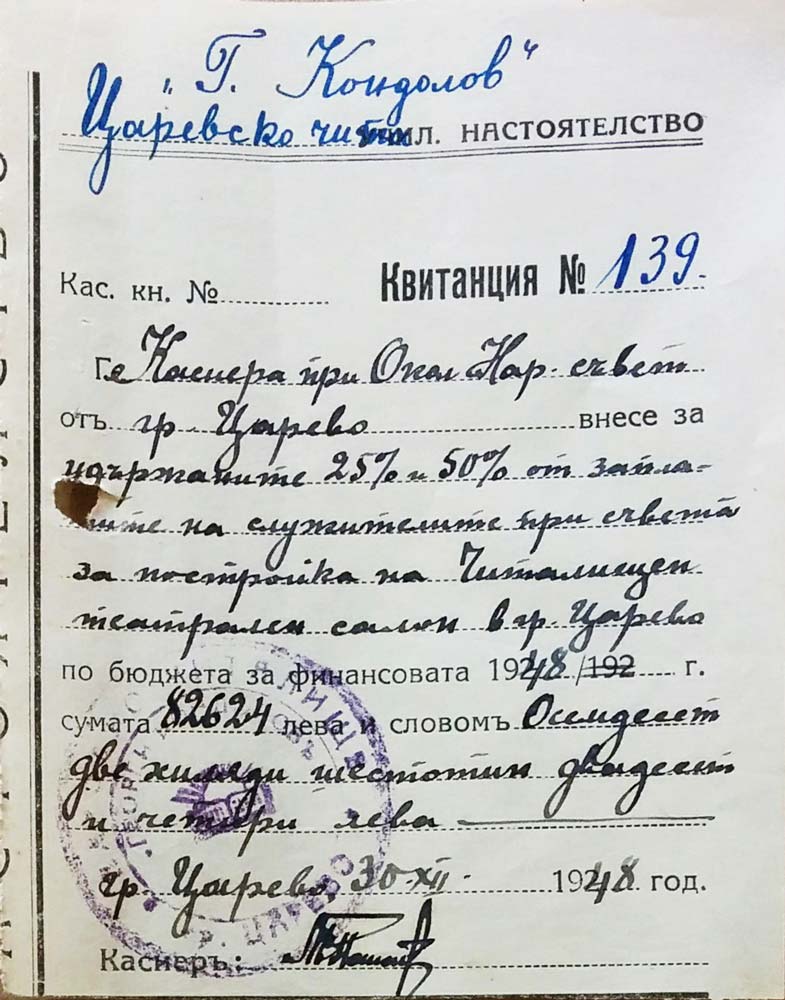 „Г. Кондолов“
Царевско чит. НАСТОЯТЕЛСТВО
Кас. кн. №
Квитанция № 139
Г. Касиера при Окол. Нар. съвет
отъ гр. Царево внесе за
удържаните 25% и 50% от запла-
тите на служителите при съвета
за постройка на Читалищен
театрален салон в гр. Царево
по бюджета за финансовата 1948/192 г.
сумата 82624 лева и словомъ Осемдесет
две хиляди шестотин двадесет
и четири лева
гр. Царево, 30 XII 1948 год.
Касиеръ:
ЧИТАЛИЩЕ
ГЕОРГИ
ЦАРЕВО